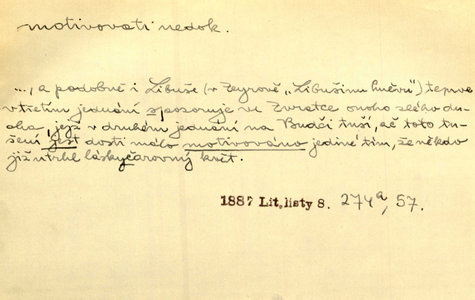 motivovati nedok.
..., a podobně i Libuše (v Zeyrově „Libušinu hněvu“) teprve
v třetím jednání spozoruje ve Zvratce onoho zlého du-
cha, jejž v druhém jednání na Budči tuší, ač toto tu-
šení jest dosti málo motivováno jedině tím, že někdo
již utrhl lásky čarovný květ.
1887 Lit. listy 8. 274a, 57.